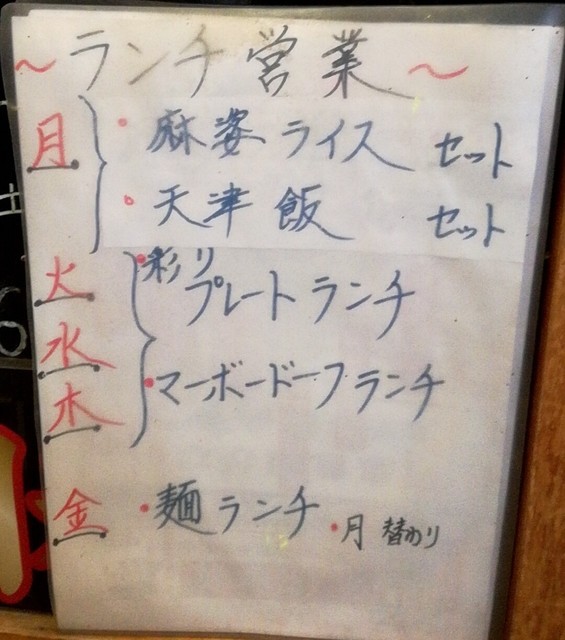 ～ランチ営業～
月
・麻婆ライス セット
・天津飯 セット
火
水
木
・彩り
プレートランチ
・マーボードーフランチ
金 ・麺ランチ ・月替わり